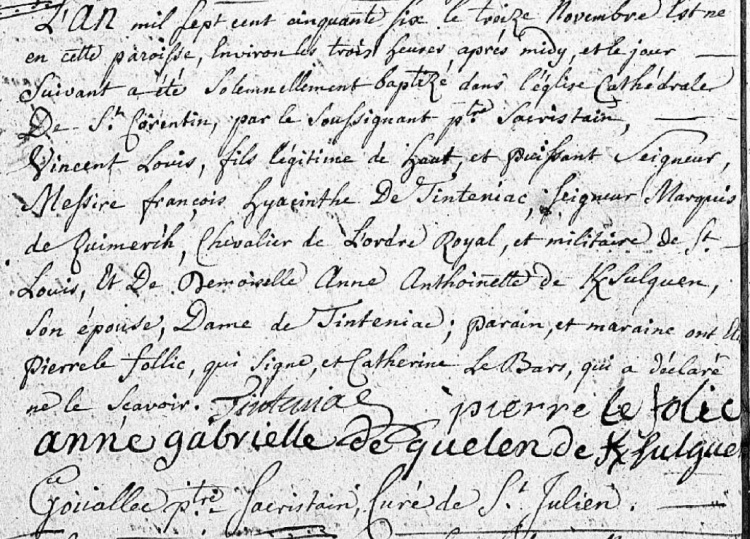 L'AN mil sept cent cinquante six le treize Novembre Est né
en cette paroisse, Environ les trois heures après midy, et le jour
Suivant a été Solemnellement baptizé dans l'église Cathédrale
De St. Corentin, par le Soussignant ptre Sacristain,
Vincent Louis, fils légitime de haut, et puissant Seigneur,
Messire françois hyacinthe De Tinteniac, Seigneur Marquis
de Quimerch, Chevalier de L'ordre Royal, et militaire de St.
Louis, Et De Demoiselle Anne Anthoinette de Ksulguen,
Son épouse, Dame de Tinteniac; parain, et maraine ont été
pierre le follic, qui Signe, et Catherine Le Bars, qui a déclaré
ne le Scavoir. Tinteniac pierre le folic
anne gabrielle de quelen de Ksulguen
Gouallec ptre Sacristain, Curé de St. Julien.